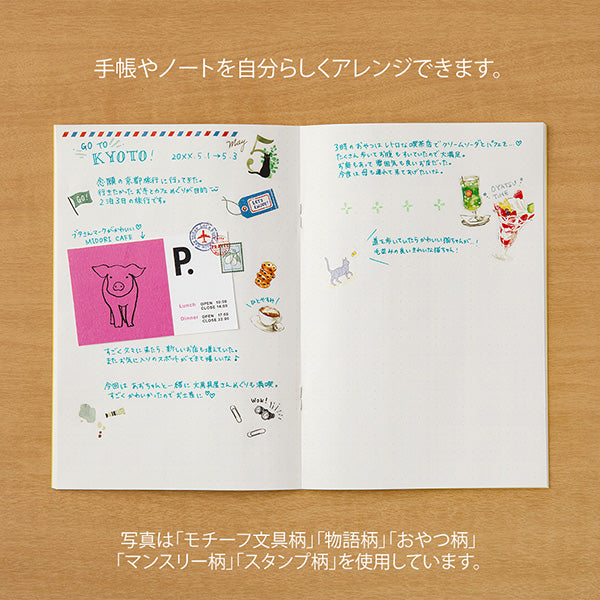 手帳やノートを自分らしくアレンジできます。
GO TO
KYOTO!
20XX.5.1→5.3
May
5
念願の京都旅行に行ってきた。
行きたかったお寺とカフェめぐりが目的
2泊3日の旅行です。
GO!
LET'S ENJOY!
ブタさんマークがかわいい♡
MIDORI CAFE
P.
Lunch OPEN 10:00
CLOSE 14:00
Dinner OPEN 17:00
CLOSE 22:00
ひとやすみ!
すごく久々に来たら、新しいお店も増えていた。
またお気に入りのスポットができて嬉しいな♪
今回は あおちゃんと一緒に 文具屋さんめぐりも満喫。
すごくかわいかったのでお土産に♡♡
WOW!
3時のおやつは、レトロな喫茶店でクリームソーダとパフェを…♡
たくさん歩いてお腹もすいていたので大満足。
お庭もあって雰囲気も良いお店だった。
今度は母も連れて来てあげたいな。
OYATSU TIME
道を歩いていたらかわいい猫ちゃんが…!
毛並みの良いきれいな猫ちゃん!
写真は「モチーフ文具柄」「物語柄」「おやつ柄」
「マンスリー柄」「スタンプ柄」を使用しています。